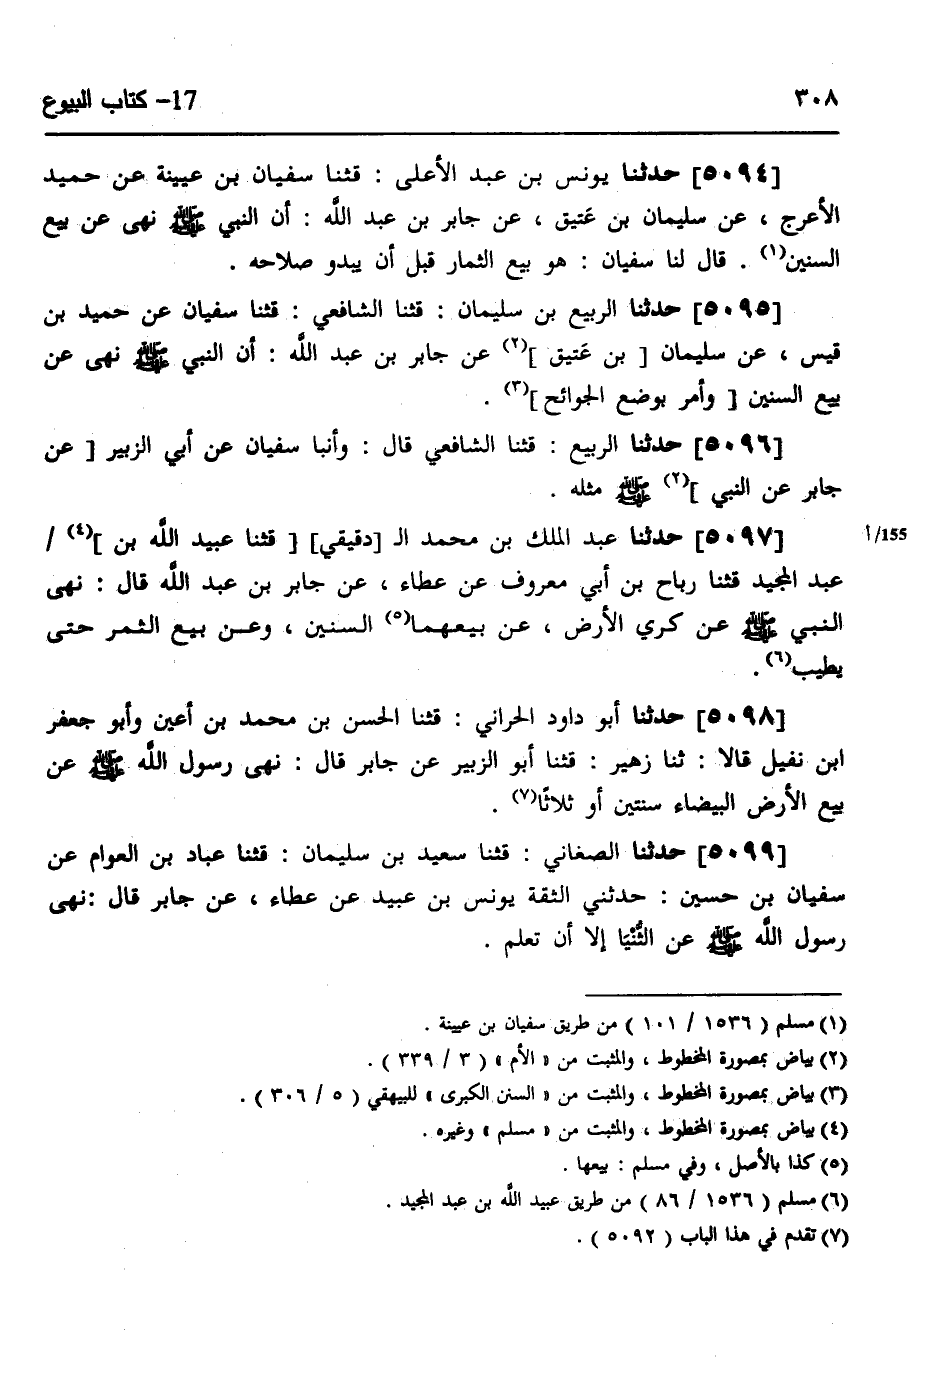 ٣٠٨ 17- كتاب البيوع
[٥٠٩٤] حدثنا يونس بن عبد الأعلى : قثنا سفيان بن عيينة عن حميد
الأعرج ، عن سليمان بن عَتيق ، عن جابر بن عبد اللَّه : أن النبي ﷺ نهى عن بيع
السنين(١) . قال لنا سفيان : هو بيع الثمار قبل أن يبدو صلاحه .
[٥٠٩٥] حدثنا الربيع بن سليمان : قثنا الشافعي : قثنا سفيان عن حميد بن
قيس ، عن سليمان [ بن عَتيق ](٢) عن جابر بن عبد اللَّه : أن النبي ﷺ نهى عن
بيع السنين [ وأمر بوضع الجوائح ](٣) .
[٥٠٩٦] حدثنا الربيع : قثنا الشافعي قال : وأنبا سفيان عن أبي الزبير [ عن
جابر عن النبي ](٢) ﷺ مثله .
[٥٠٩٧] حدثنا عبد الملك بن محمد الـ [دقيقي] [ قثنا عبيد اللَّه بن ](٤) / 155/أ
عبد المجيد قثنا رباح بن أبي معروف عن عطاء ، عن جابر بن عبد اللَّه قال : نهى
النبي ﷺ عن كري الأرض ، عن بيعهما(٥) السنين ، وعن بيع الثمر حتى
يطيب(٦) .
[٥٠٩٨] حدثنا أبو داود الحراني : قثنا الحسن بن محمد بن أعين وأبو جعفر
ابن نفيل قالا : ثنا زهير : قثنا أبو الزبير عن جابر قال : نهى رسول اللَّه ﷺ عن
بيع الأرض البيضاء سنتين أو ثلاثًا(٧) .
[٥٠٩٩] حدثنا الصغاني : قثنا سعيد بن سليمان : قثنا عباد بن العوام عن
سفيان بن حسين : حدثني الثقة يونس بن عبيد عن عطاء ، عن جابر قال :نهى
رسول اللَّه ﷺ عن الثُّنْيَا إلا أن تعلم .
(١) مسلم ( ١٥٣٦ / ١٠١ ) من طريق سفيان بن عيينة .
(٢) بياض بمصورة المخطوط ، والمثبت من « الأم » ( ٣ / ٣٣٩ ) .
(٣) بياض بمصورة المخطوط ، والمثبت من « السنن الكبرى » للبيهقي ( ٥ / ٣٠٦ ) .
(٤) بياض بمصورة المخطوط ، والمثبت من « مسلم » وغيره .
(٥) كذا بالأصل ، وفي مسلم : بيعها .
(٦) مسلم ( ١٥٣٦ / ٨٦ ) من طريق عبيد اللَّه بن عبد المجيد .
(٧) تقدم في هذا الباب ( ٥٠٩٢ ) .